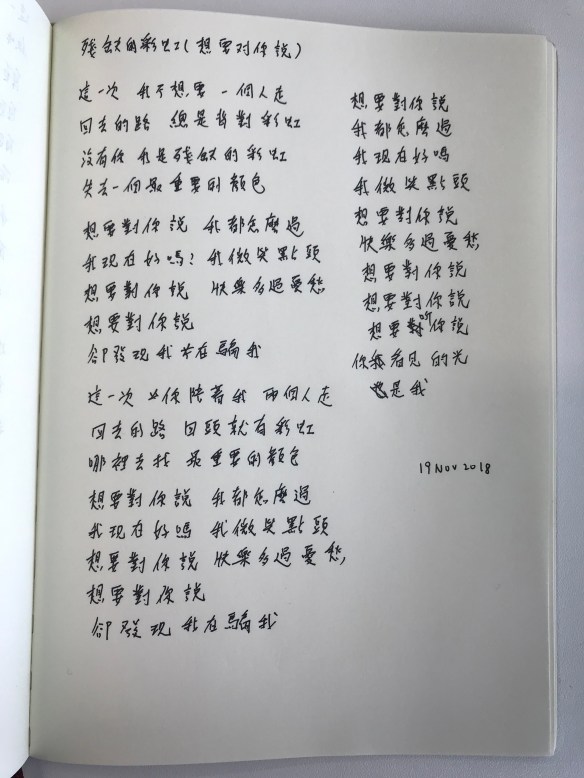 殘缺的彩虹(想要对你說)
這一次 我不想要 一個人走
回去的路 總是背對 彩虹
沒有你 我是殘缺的彩虹
失去一個最重要的顏色
想要對你說 我都怎麼過
我現在好嗎? 我微笑點頭
想要對你說 快樂多過憂愁
想要對你說
卻發現我在騙我
這一次 你陪著我 兩個人走
回去的路 回頭就有彩虹
哪裡去找 最重要的顏色
想要對你說 我都怎麼過
我現在好嗎 我微笑點頭
想要對你說 快樂多過憂愁
想要對你說
卻發現 我在騙我
想要對你說
我都怎麼過
我現在好嗎
我微笑點頭
想要對你說
快樂多過憂愁
想要對你說
想要對你說
想要聽你說
你我看見 的光
也是我
19 Nov 2018